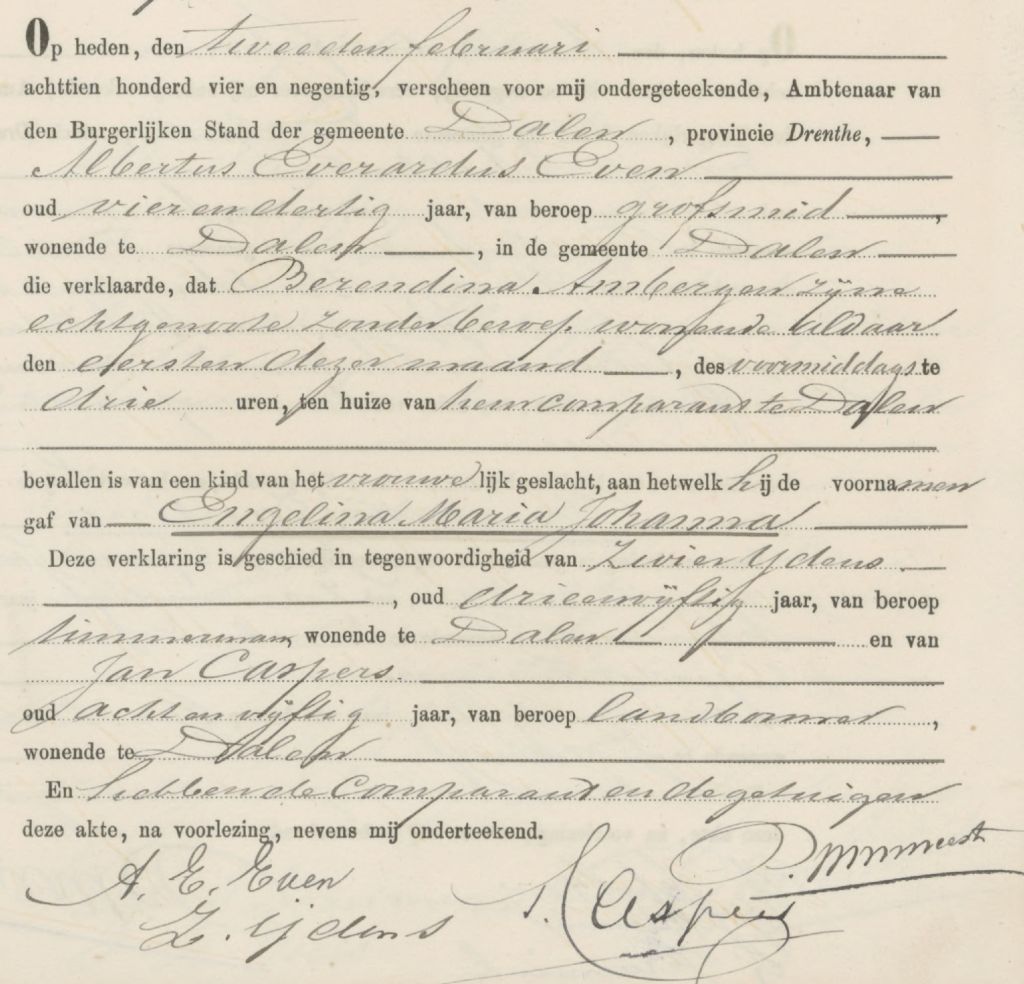 Op heden, den tweeden februari
achttien honderd vier en negentig, verscheen voor mij ondergeteekende, Ambtenaar van
den Burgerlijken Stand der gemeente Dalen, provincie Drenthe,
Albertus Everardus Even
oud vierendertig jaar, van beroep grofsmid,
wonende te Dalen, in de gemeente Dalen
die verklaarde, dat Berendina Ambergen zijne
echtgenoote zonder beroep, wonende aldaar
den eersten dezer maand, des voormiddags te
drie uren, ten huize van hem comparant te Dalen
bevallen is van een kind van het vrouwelijk geslacht, aan hetwelk hij de voornamen
gaf van Engelina Maria Johanna
Deze verklaring is geschied in tegenwoordigheid van Zwier Ydens
, oud drieenvijftig jaar, van beroep
timmerman, wonende te Dalen en van
Jan Caspers.
oud achtenvijftig jaar, van beroep landbouwer,
wonende te Dalen
En hebben de comparant en de getuigen
deze akte, na voorlezing, nevens mij onderteekend.
A. E. Even
Z. Ydens
J. Caspers